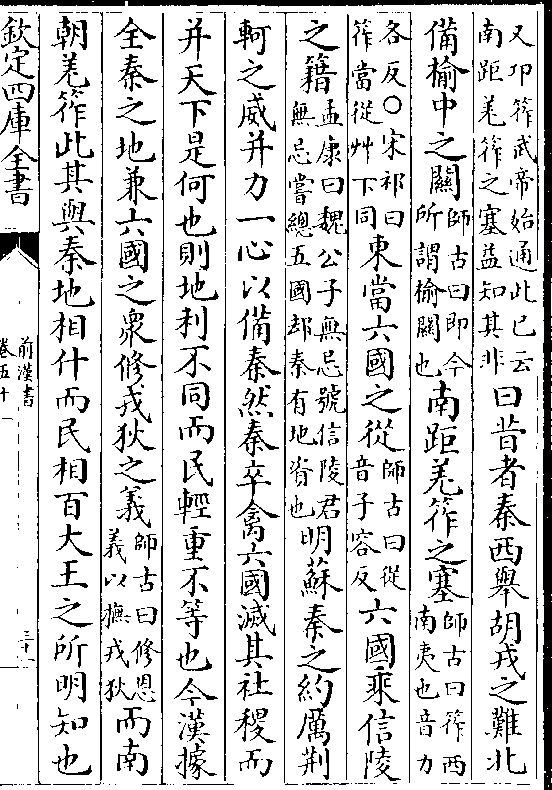 又卭筰武帝始通此已云
南距羌筰之塞益知其非
曰昔者秦西舉胡戎之難北
備榆中之關
師古曰即今
所謂榆關也
南距羌筰之塞
師古曰筰西
南夷也音力
各反○宋祁曰
筰當從艸下同
東當六國之從
師古曰從
音子容反
六國乘信陵
之籍
孟康曰魏公子無忌號信陵君
無忌嘗總五國却秦有地資也
明蘇秦之約厲荆
軻之威并力一心以備秦然秦卒禽六國滅其社稷而
并天下是何也則地利不同而民輕重不等也今漢據
全秦之地兼六國之衆修戎狄之義
師古曰修恩
義以撫戎狄
而南
朝羌筰此其與秦地相什而民相百大王之所明知也
欽定四庫全書
前漢書
卷五十一
三十